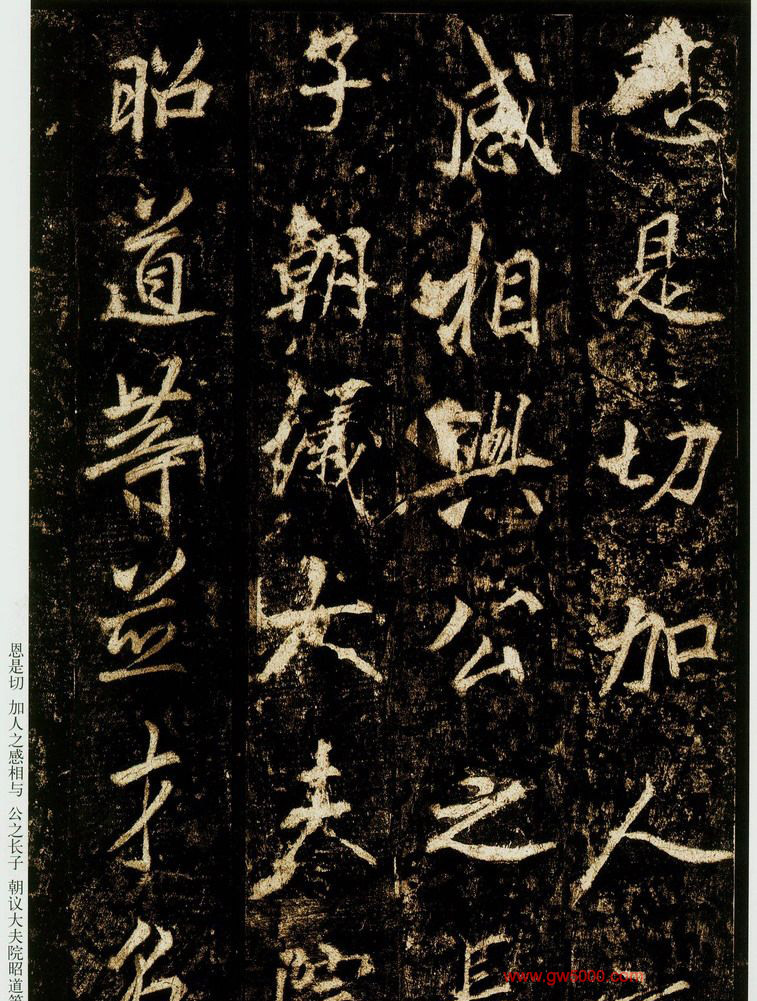 是切加人
感相與公之長
子朝議大夫院
昭道等並才名
恩是切 加人之感相与 公之长子 朝议大夫院昭道等
www.gw5000.com